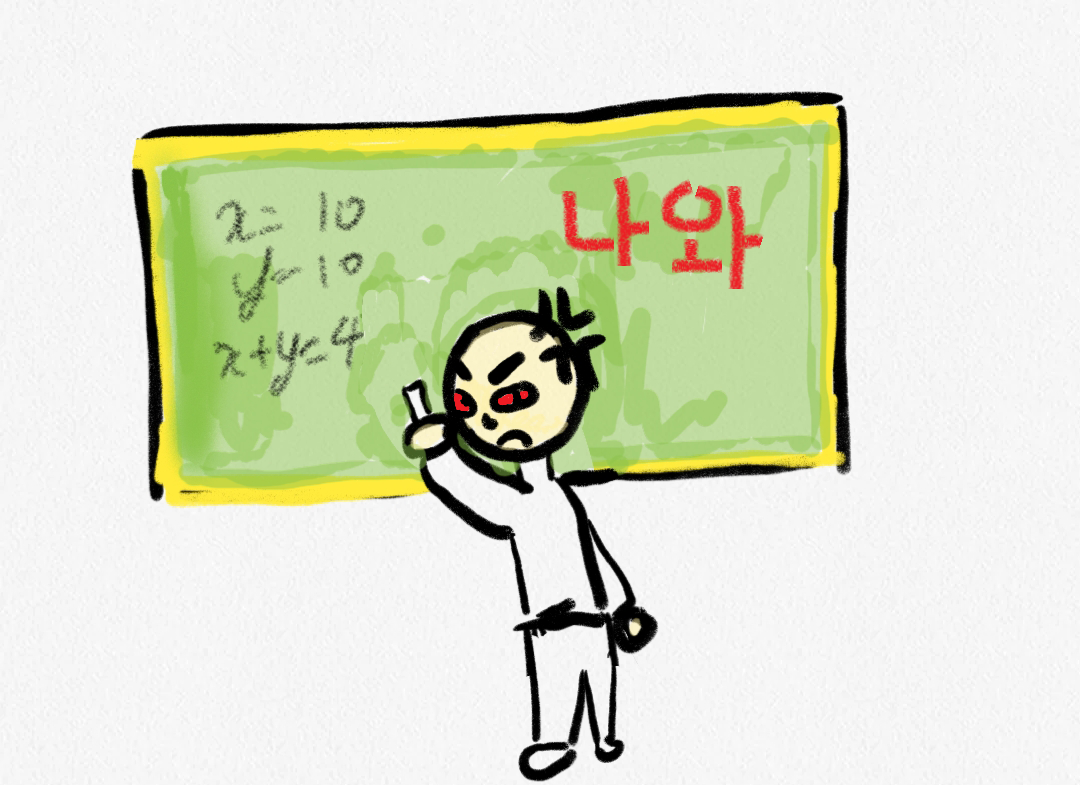 x= 10
y= 10
x+y=4
나와